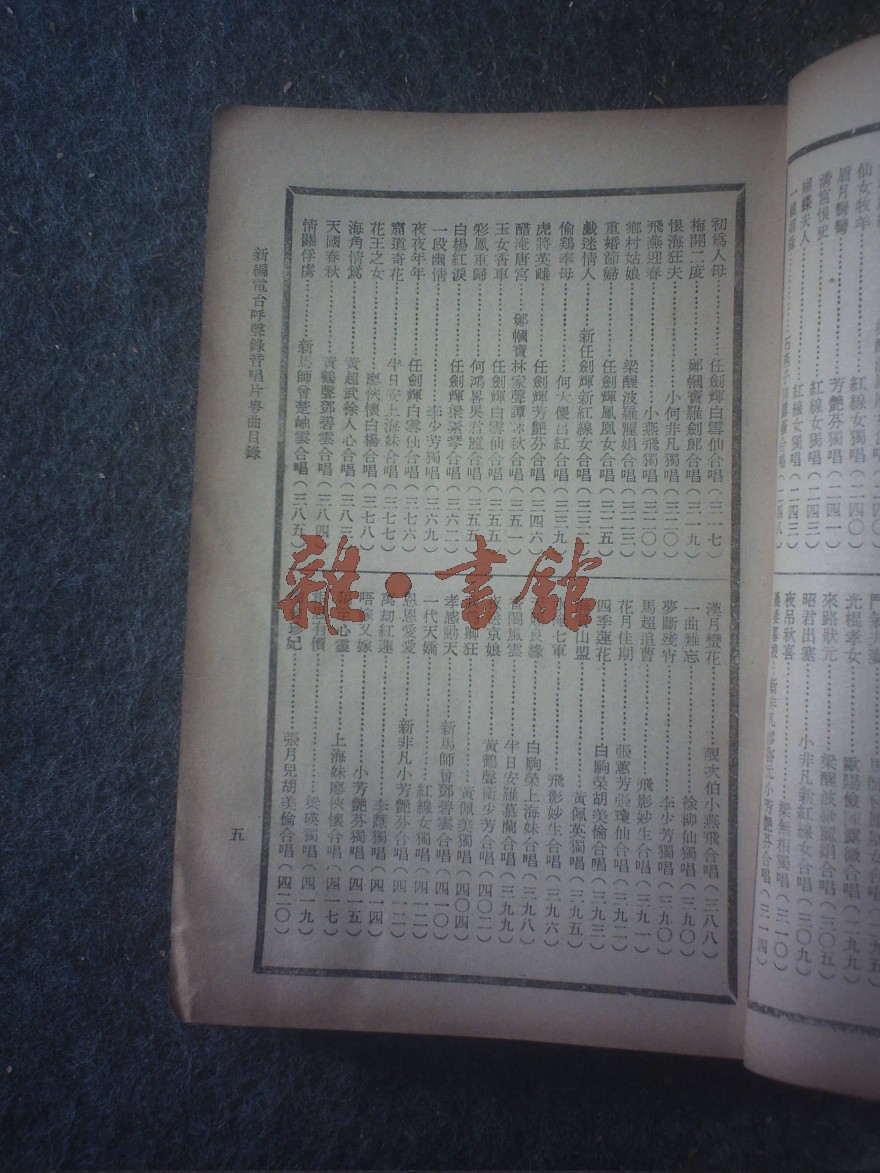 初爲人母⋯⋯任劍輝白雪仙合唱(三一七)
梅開二度⋯⋯鄭幗寶羅劍郎合唱(三一九)
恨海狂夫⋯⋯小何非凡獨唱(三二〇)
飛燕迎春⋯⋯小燕飛獨唱(三二〇)
鄉村姑娘⋯⋯梁醒波羅麗娟合唱(三二三)
重婚節婦⋯⋯任劍輝鳳凰女合唱(三二五)
戲迷情人⋯⋯新任劍輝新紅線女合唱(三三〇)
偷鷄奉母⋯⋯何大傻呂紅合唱(三三九)
虎將英雌⋯⋯任劍輝芳艷芬合唱(三四六)
醋淹唐宮⋯⋯鄭幗寶林家聲譚冰秋合唱(三五一)
王女香車⋯⋯任劍輝白雪仙合唱(三五五)
彩鳳重歸⋯⋯何鴻畧吳君麗合唱(三五五)
白楊紅淚⋯⋯任劍輝梁素琴合唱(三六二)
一段幽情⋯⋯李少芳獨唱(三六九)
夜夜年年⋯⋯任劍輝白雪仙合唱(三七六)
齋道奇花⋯⋯半日安上海妹合唱(三七七)
花王之女⋯⋯廖俠懷白楊合唱(三七八)
海角情鴛⋯⋯黃超武徐人心合唱(三八三)
天國春秋⋯⋯黃鶴聲鄧碧雲合唱(三八四)
情關俘虜⋯⋯新馬師曾楚岫雲合唱(三八五)
漢月蠻花⋯⋯靚次伯小燕飛合唱(三八八)
一曲難忘⋯⋯徐柳仙獨唱(三九〇)
夢斷殘宵⋯⋯李少芳獨唱(三九〇)
馬超追曹⋯⋯飛影妙生合唱(三九一)
花月佳期⋯⋯張蕙芳張瓊仙合唱(三九二)
四季蓮花⋯⋯白駒榮胡美倫合唱(三九三)
山盟⋯⋯黃佩英獨唱(三九五)
七軍⋯⋯飛影妙生合唱(三九六)
良緣⋯⋯白駒榮上海妹合唱(三九八)
閨風雲⋯⋯半日安羅慕蘭合唱(三九九)
送京娘⋯⋯黃鶴聲衛少芳合唱(四〇二)
卿狂⋯⋯黃佩美獨唱(四〇四)
孝感動天⋯⋯新馬師曾鄧碧雲合唱(四一〇)
一代天嬌⋯⋯紅線女獨唱(四一二)
恩恩愛愛⋯⋯新非凡小芳艷芬合唱(四一二)
萬劫紅蓮⋯⋯李燕獨唱(四一四)
唔嫁又嫁⋯⋯小芳艷芬獨唱(四一五)
心靈⋯⋯上海妹廖俠懷合唱(四一七)
有價⋯⋯梁瑛獨唱(四一九)
珍妃⋯⋯張月兒胡美倫合唱(四二〇)
新編電台呼聲錄音唱片粵曲目錄
五
仙女牧羊⋯⋯紅線女獨唱(二四〇)
眉月彎彎⋯⋯芳艷芬獨唱(二四一)
清宮恨史⋯⋯紅線女獨唱(二四三)
蝴蝶夫人⋯⋯紅線女獨唱(二四三)
光棍孝女⋯⋯歐陽儉合唱(二九九)
來路狀元⋯⋯梁醒波羅麗娟合唱(三〇五)
昭君出塞⋯⋯小非凡新紅線女合唱(三〇九)
夜吊秋喜⋯⋯梁無相獨唱(三一〇)
小芳艷芬合唱(三一四)
雜·書館